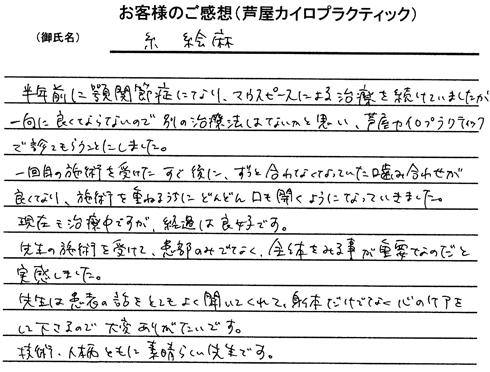 お客様のご感想(芦屋カイロプラクティック)
(御氏名) 糸 絵麻
半年前に顎関節症になり、マウスピースによる治療を続けていましたが
一向に良くならないので別の治療法はないかと思い、芦屋カイロプラクティック
で診てもらうことにしました。
一回目の施術を受けたすぐ後に、ずっと合わなくなっていた噛み合わせが
良くなり、施術を重ねるうちにどんどん口も開くようになっていきました。
現在も治療中ですが、経過は良好です。
先生の施術を受けて、患部のみでなく、全体をみる事が重要なのだと
実感しました。
先生は患者の話をとてもよく聞いてくれて、身体だけでなく心のケアを
して下さるので大変ありがたいです。
技術、人柄ともに素晴らしい先生です。